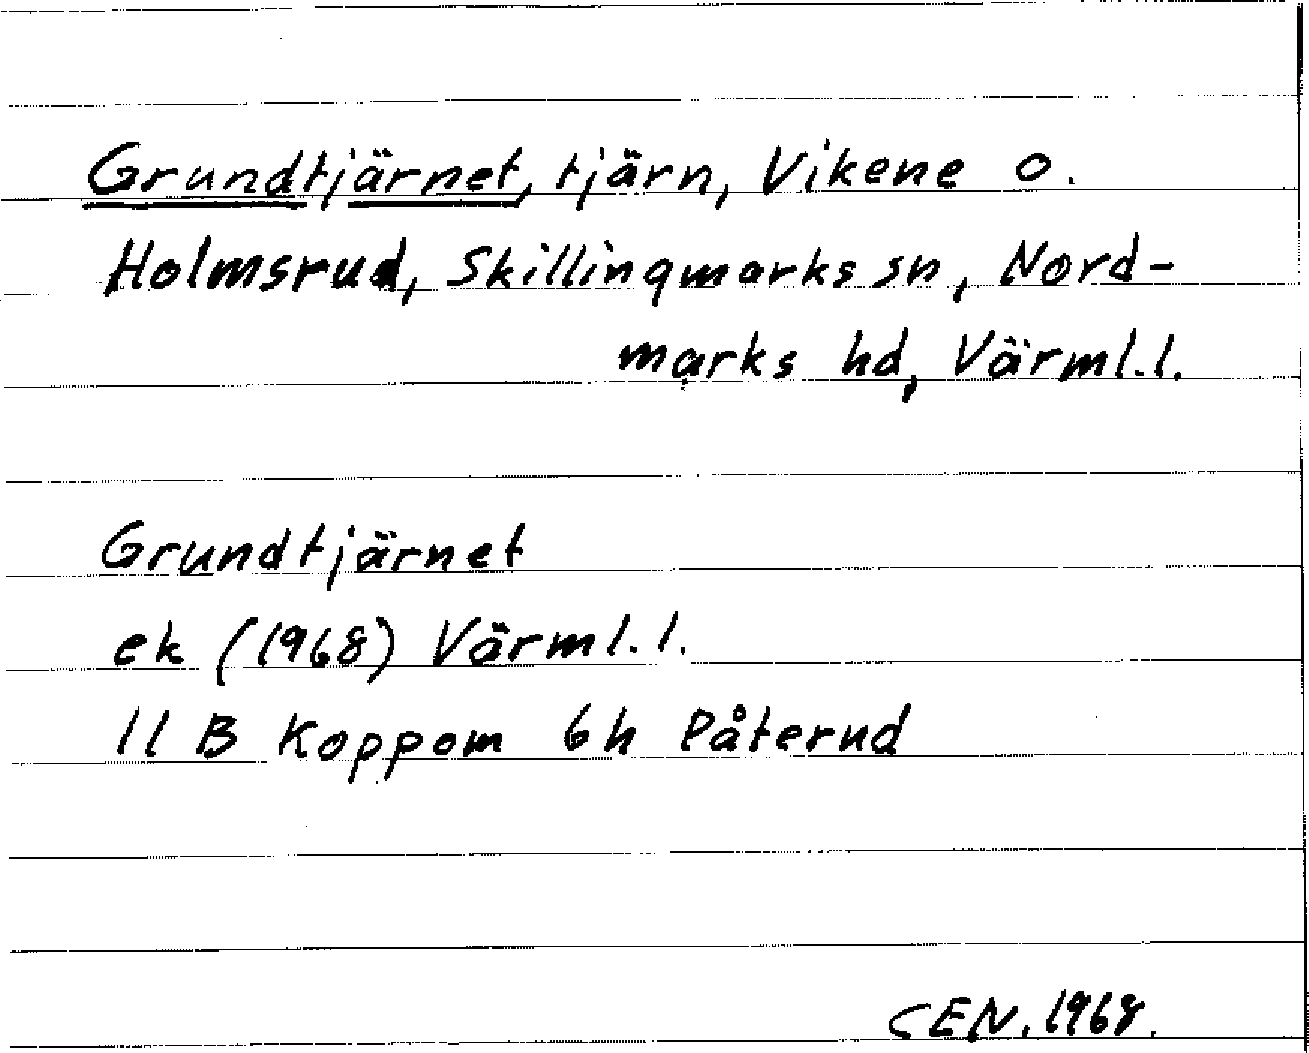 Grundtjärnet, tjärn, Vikene o.
Holmsrud, Skillingmarks sn, Nord-
marks hd, Värml.l.
Grundtjärnet
ek (1968) Värml.l.
11 B Koppom 6h Påterud
CEN. 1968.